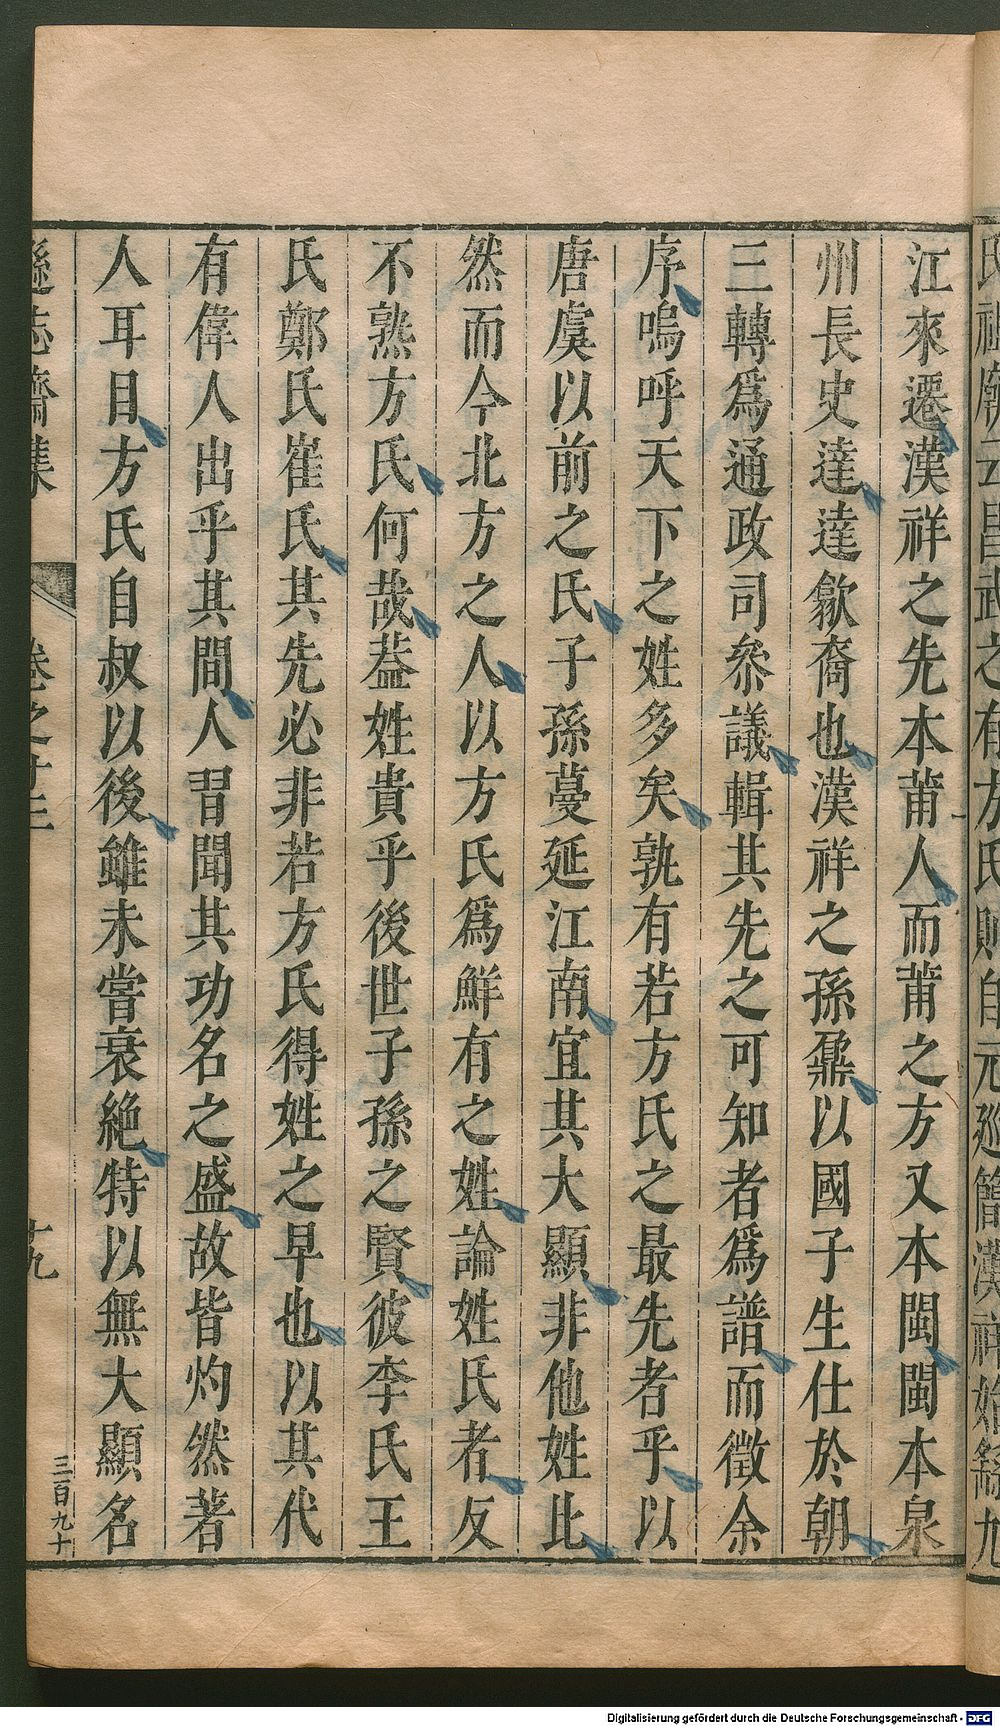 江來遷漢祥之先本莆人而莆之方又本閩閩本泉
州長史達達歙裔也漢祥之孫鼐以國子生仕於朝
三轉爲通政司叅議輯其先之可知者爲譜而徵余
序嗚呼天下之姓多矣孰有若方氏之最先者乎以
唐虞以前之氏子孫蔓延江南宜其大顯非他姓比
然而今北方之人以方氏爲鮮有之姓論姓氏者反
不熟方氏何哉葢姓貴乎後世子孫之賢彼李氏王
氏鄭氏崔氏其先必非若方氏得姓之早也以其代
有偉人出乎其間人習聞其功名之盛故皆灼然著
人耳目方氏自叔以後雖未嘗衰絶特以無大顯名
遜志齋集 卷之十三 十九 三百九十
Digitalisierung gefördert durch die Deutsche Forschungsgemeinschaft - DFG